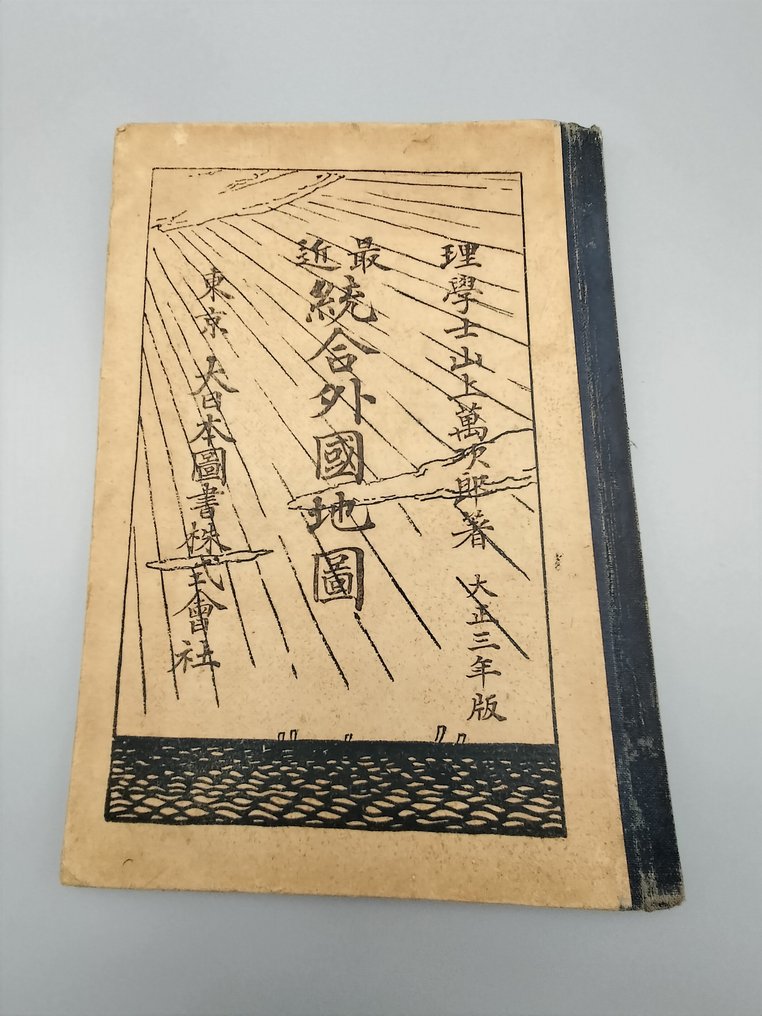 理學士山上萬次郎著 大正三年版
最近
統合外國地圖
東京 大日本圖書株式會社